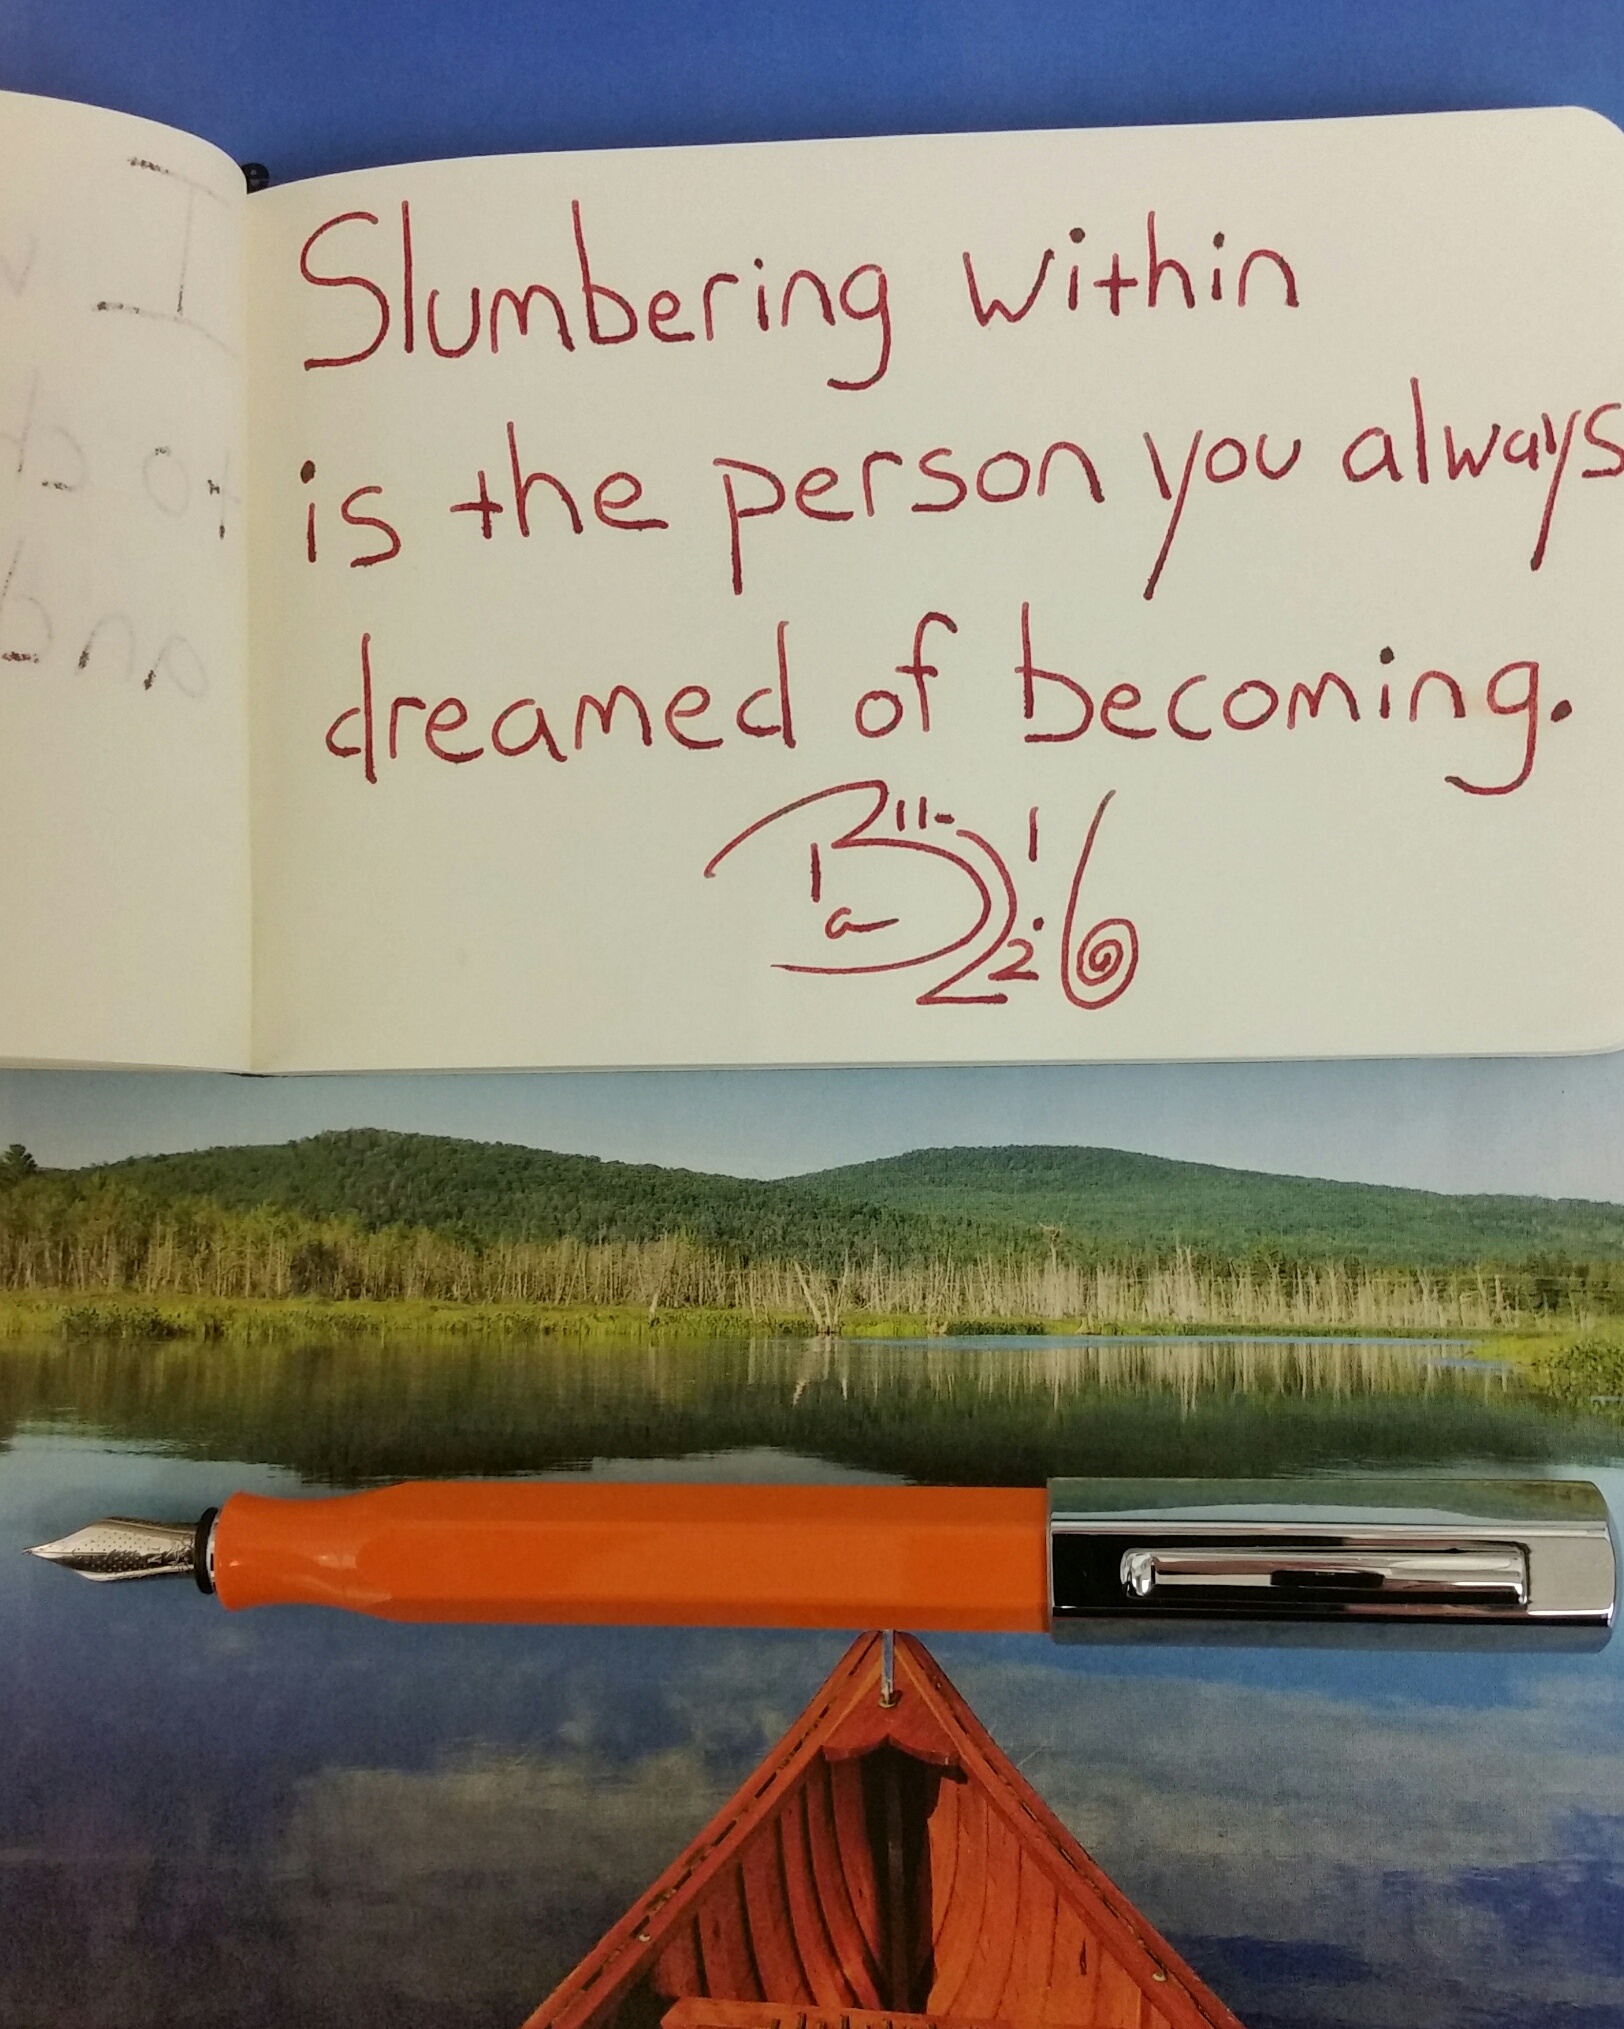 Slumbering within
is the person you always
dreamed of becoming.